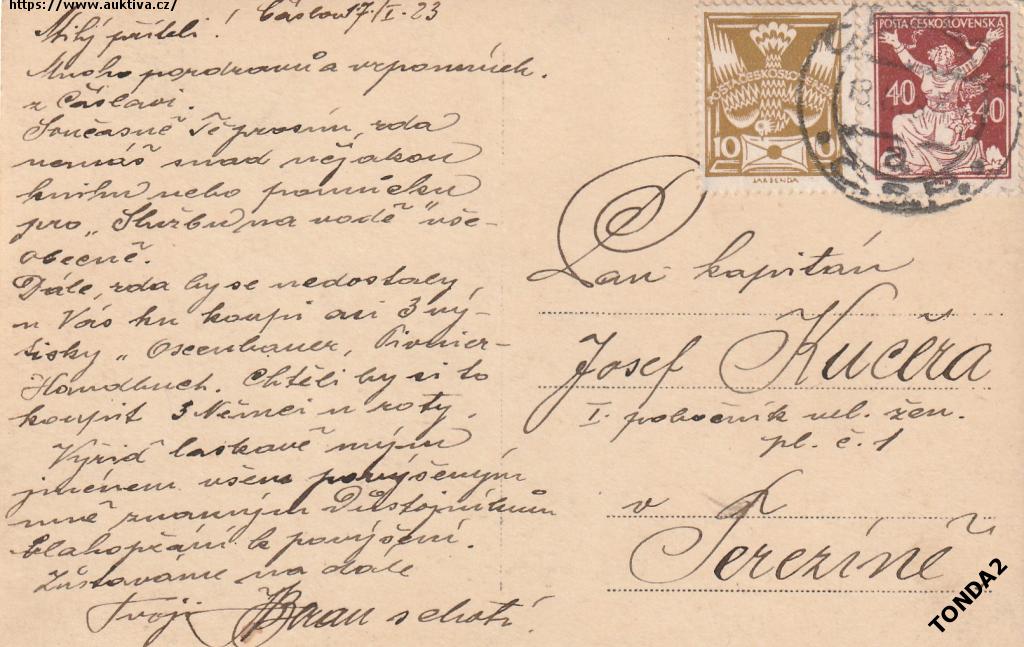 https://www.auktiva.cz/
Čáslav 17/I. 23
Milý příteli!
Mnoho pozdravů a vzpomínek
z Čáslavi.
Současně Tě prosím, zda
nemáš snad nějakou
knihu nebo pomůcku
pro „Službu na vodě" vše-
obecně.
Dále, zda by se nedostaly
u Vás ku koupi asi 3 vý-
tisky „Osenbauer, Pionier-
Handbuch. Chtěli by si to
koupit 3 Němci u roty.
Vyřiď laskavě mým
jménem všem povýšeným
mně známých Důstojníkům
blahopřání k povýšení.
Zůstáváme na dále
Tvoji
s chotí.
POSTA ČESKOSLOVENSKÁ
10
JAK. BENDA
POSTA ČESKOSLOVENSKÁ
40 40
18
a
Č.S.P.
Pan kapitán
Josef Kučera
I. pobočník vel. žen.
pl. č. 1
v
Terezíně
TONDA2